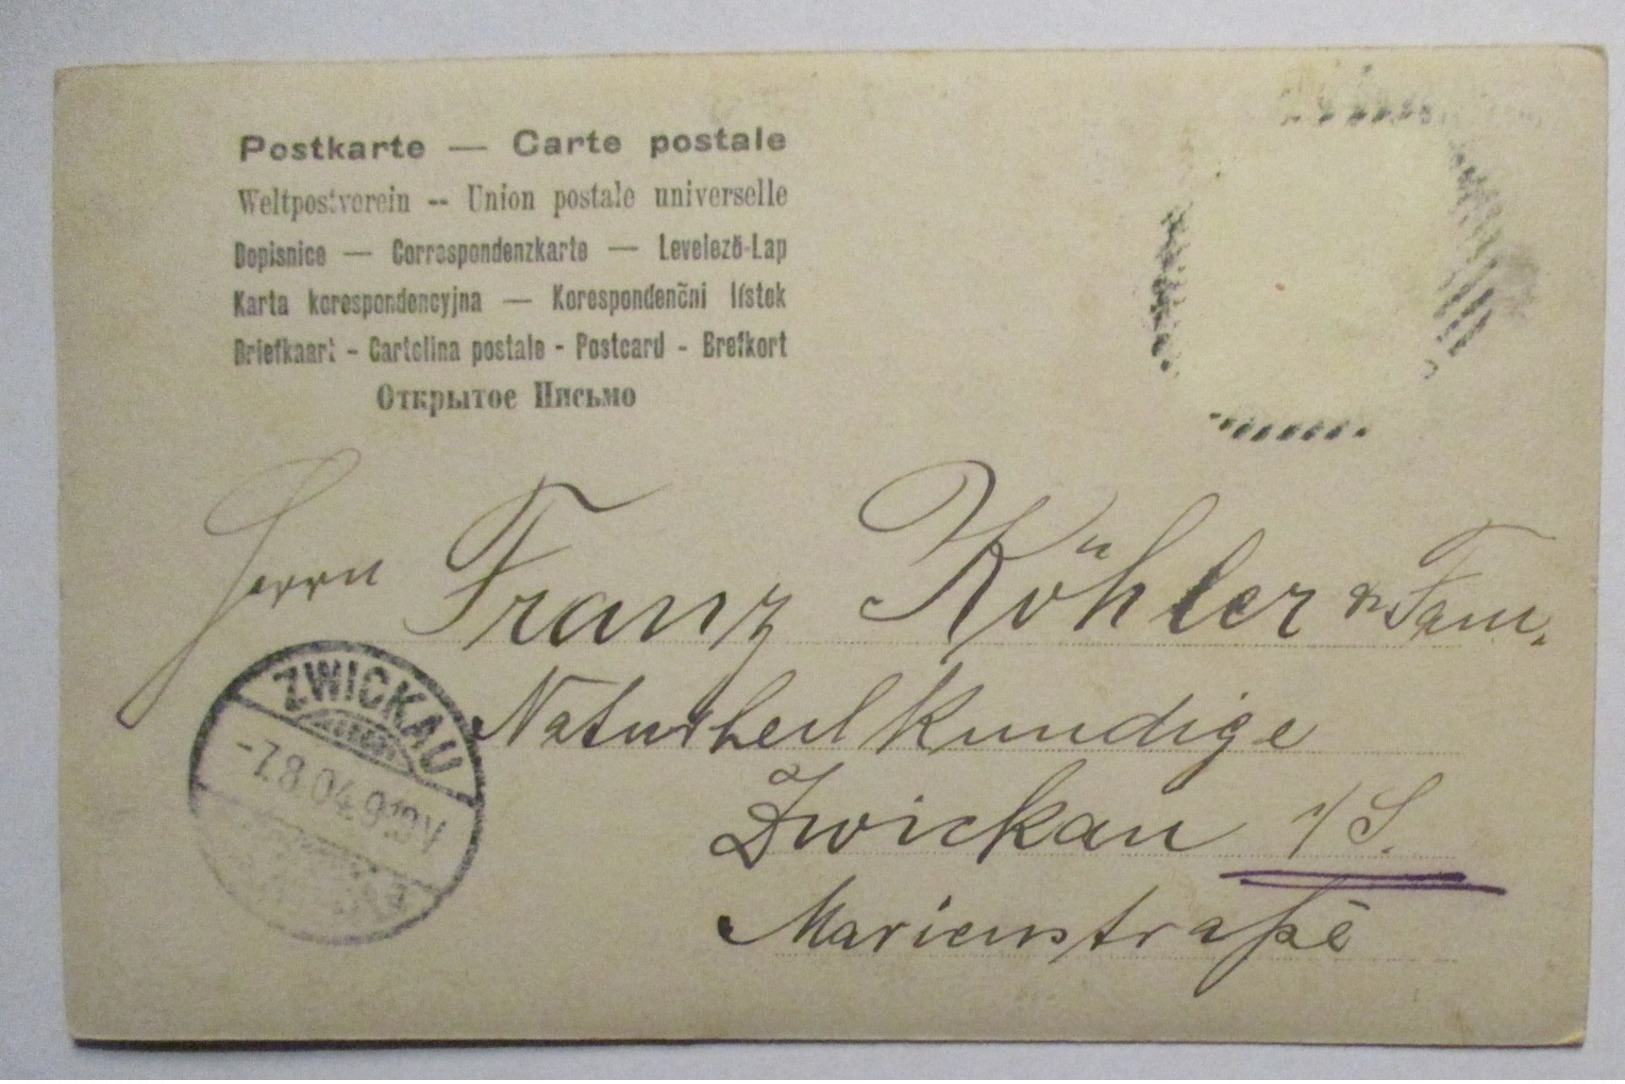 Postkarte — Carte postale
Weltpostverein -- Union postale universelle
Dopisnice — Correspondenzkarte — Levelező-Lap
Karta korespondencyjna — Korespondenčni lístek
Briefkaart - Cartolina postale - Postcard - Brefkort
Открытое Письмо
Herrn Franz Köhler & Fam.
Naturheilkundige
Zwickau i/S.
Marienstraße
ZWICKAU
-7.8.04.9.10V